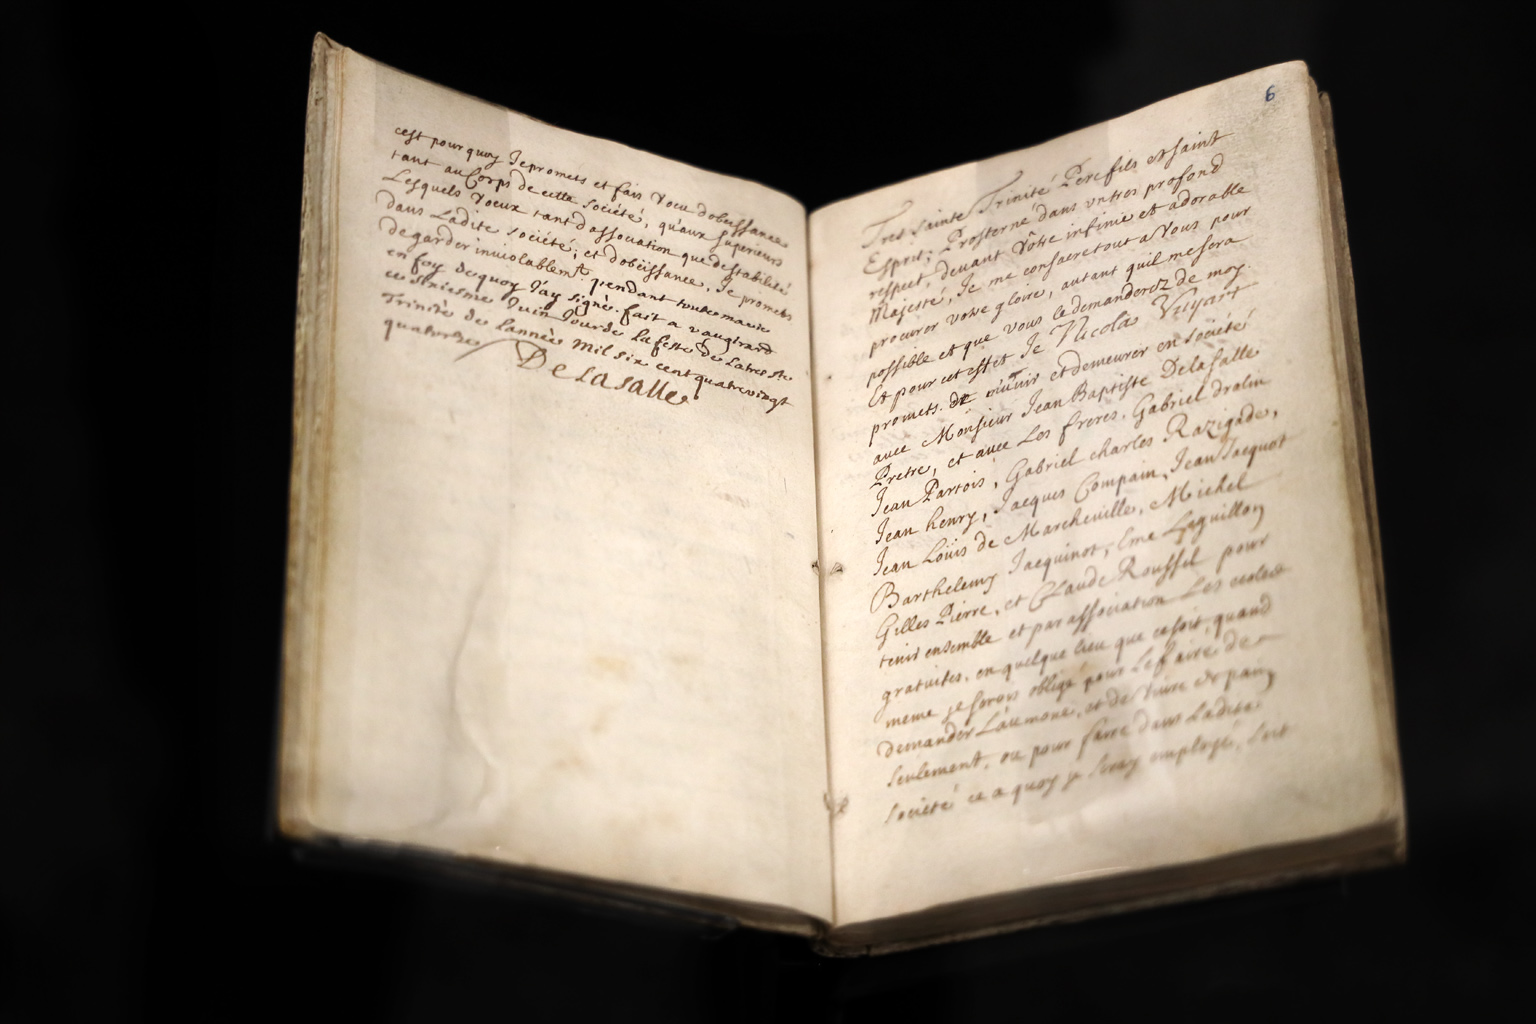 cest pourquoy Je promets et fais Voeu dobeissance
tant au Corps de cette Société, qu'aux Superieurs
Lesquels Voeux tant dassociation que destabilité
dans Ladite société; et dobëissance, Je promets
de garder inviolablemt. pendant toute ma vie
en foy dequoy J'ay signé. fait a vaugirard
ce sixiesme Juin Jour de La feste de Latres ste
Trinité de Lannée mil six cent quatrevingt
quatorze
De La salle
6
Tres Sainte Trinité Pere fils et saint
Esprit; Prosterné dans un tres profond
respect, devant Vôtre infinie et adorable
Majesté, Je me consacre tout a Vous pour
procurer votre gloire, autant quil me sera
possible et que vous le demanderez de moy.
Et pour cet effet Je Nicolas Vuyart
promets de m'unir et demeurer en Société
avec Monsieur Jean Baptiste Delasalle
Pretre, et avec Les freres. Gabriel drolin
Jean Partois, Gabriel charles Razigade,
Jean henry, Jacques Compain, Jean Jacquot
Jean Loüis de Marcheville, Michel
Barthelemy Jacquinot, Eme Leguillon
Gilles Pierre, et Claude Roussel pour
tenir ensemble et par association Les ecoles
gratuites, en quelque lieu que ce soit, quand
meme je serois obligé pour Le faire de
demander L'aumone, et de vivre de pain
seulement, ou pour faire dans Ladite
société ce a quoy je seray employé, soit